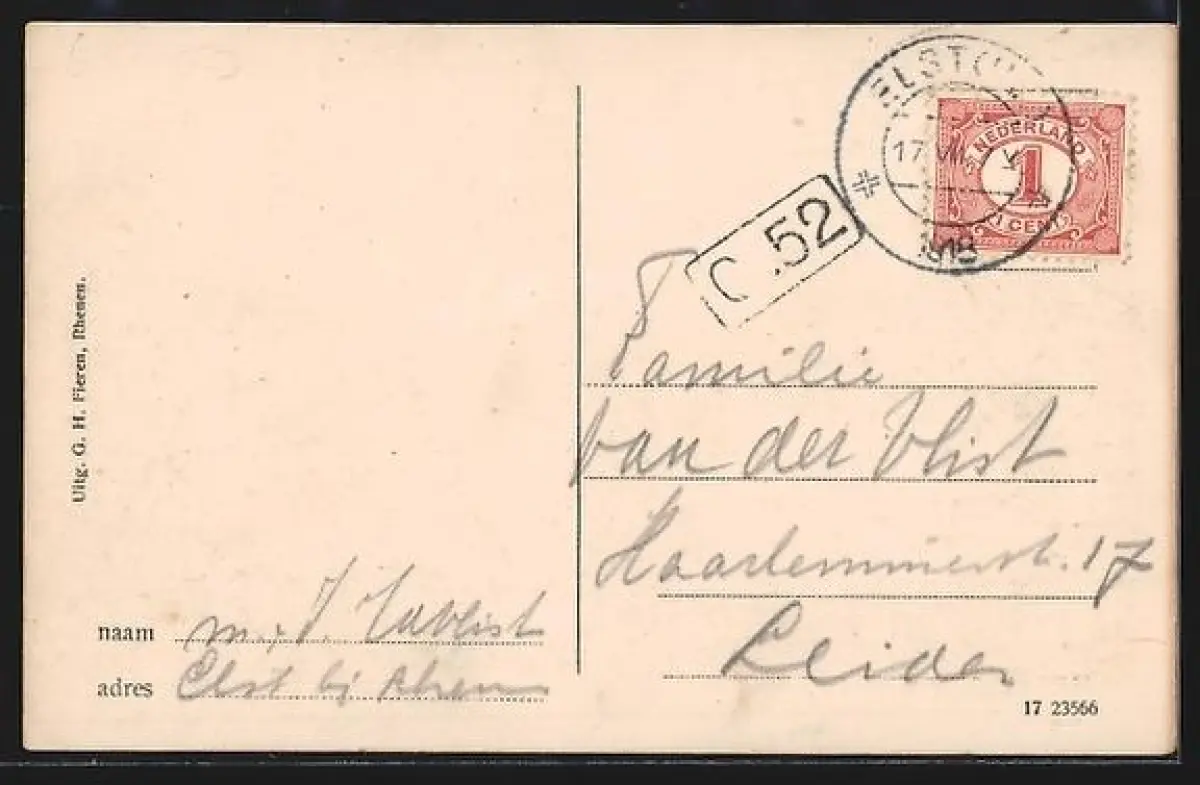 ELST (U
17 VII
1918
NEDERLAND
1
1 CENT
C .52
Familie
van der Vlist
Haarlemmerstr. 17
Leiden
Uitg. G. H. Fieren, Rhenen.
naam m. J. vdVlist
adres Elst bij Rhenen
17 23566